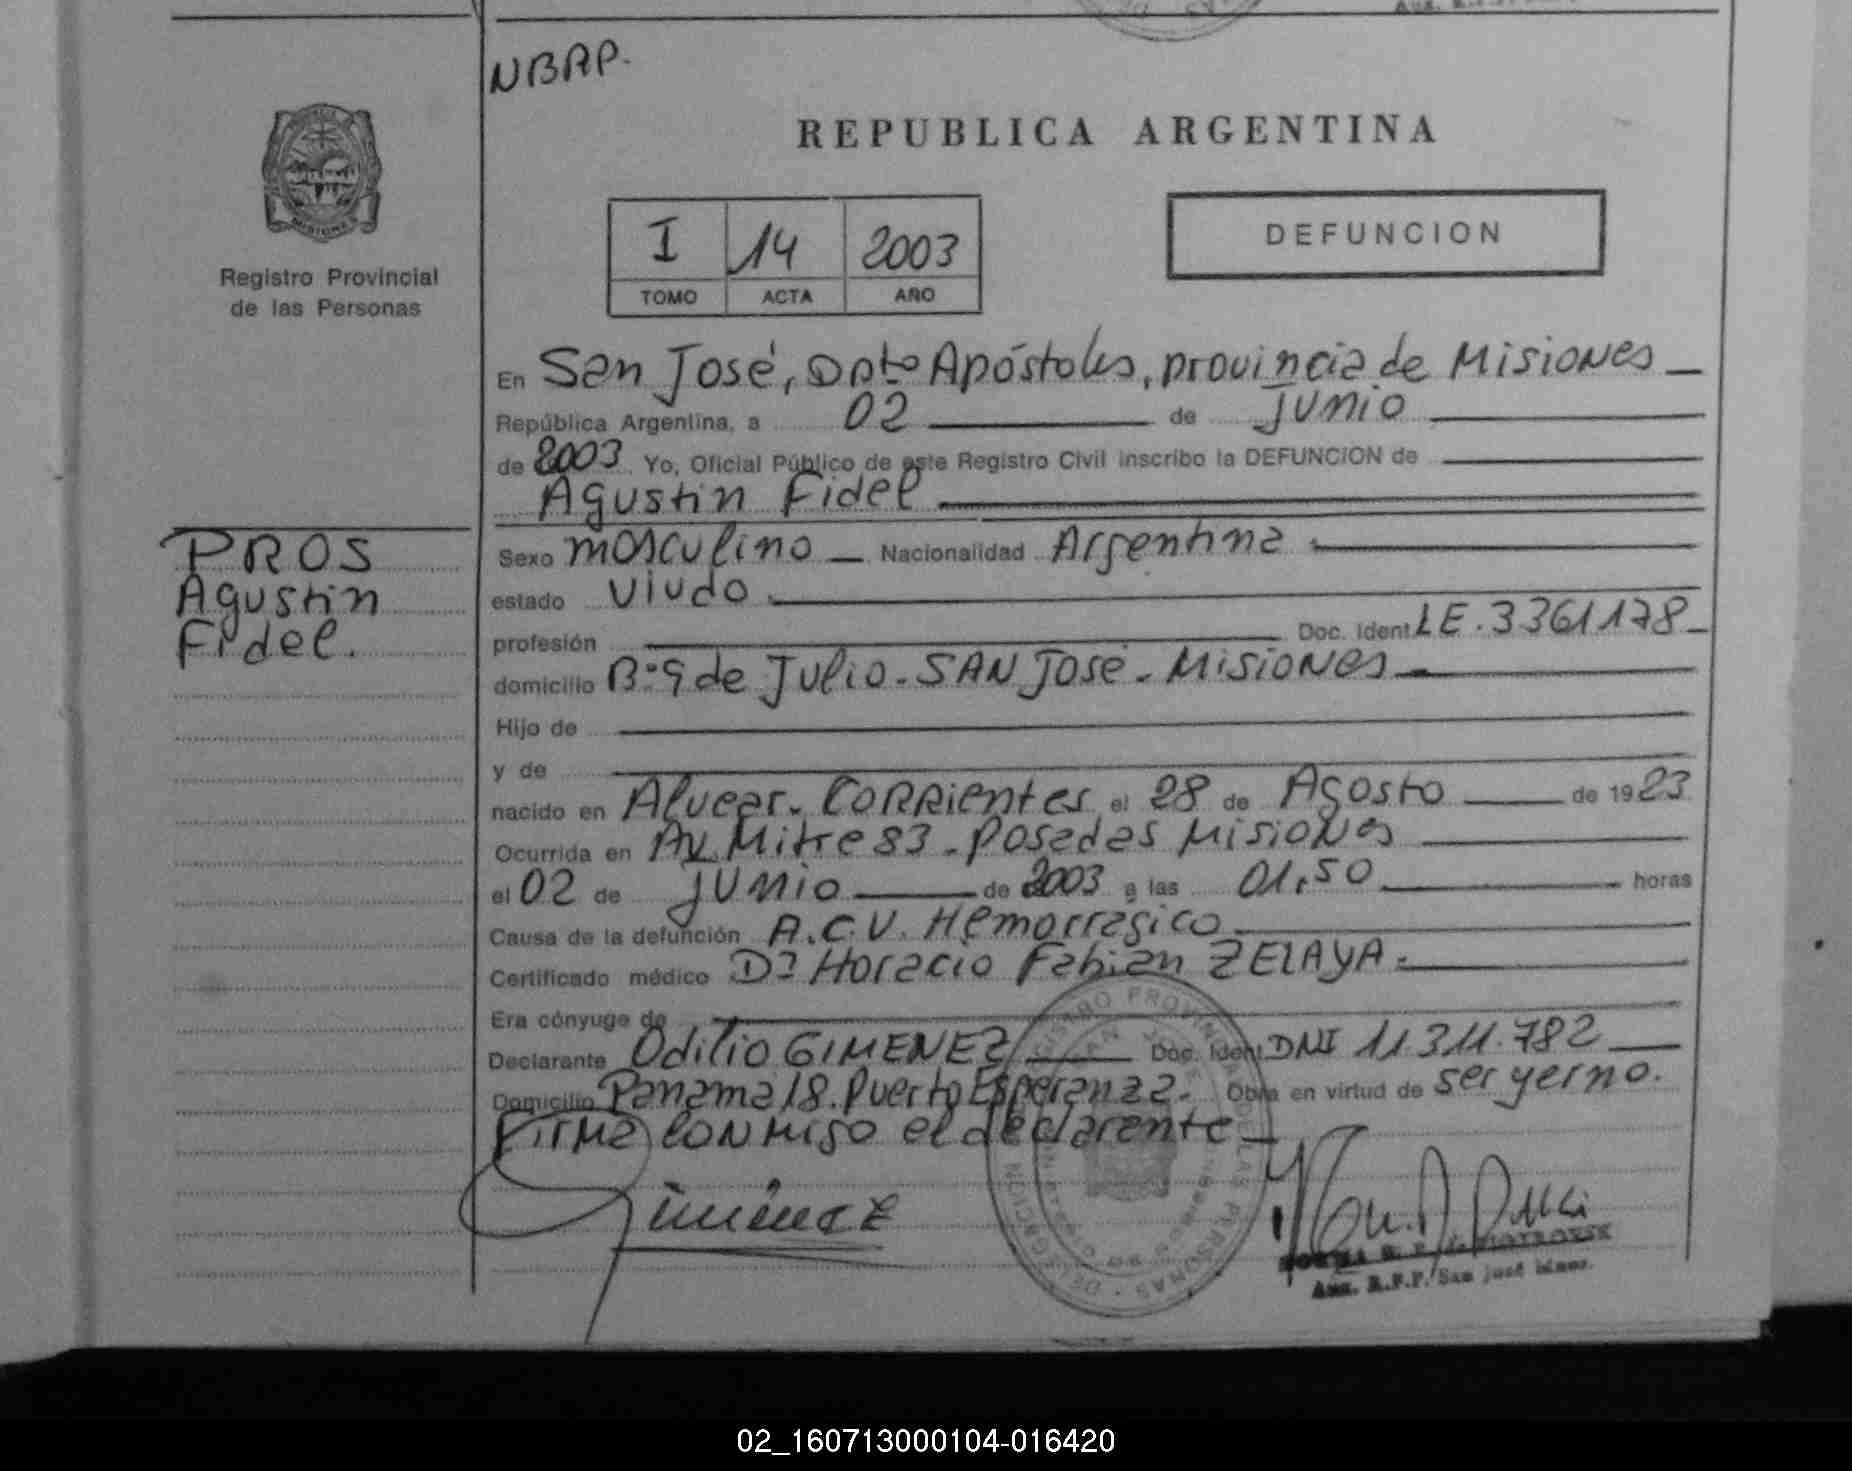 NBAP.
REPUBLICA ARGENTINA
Registro Provincial
de las Personas
I 14 2003
TOMO ACTA AÑO
DEFUNCION
En San José, Dpto Apóstoles, provincia de Misiones
República Argentina, a 02 de junio
de 2003 Yo, Oficial Público de este Registro Civil inscribo la DEFUNCION de
Agustin Fidel
PROS
Agustin
Fidel.
Sexo masculino Nacionalidad Argentina
estado viudo
profesión Doc. Ident LE. 3361178
domicilio Bº 9 de Julio - SAN José - Misiones
Hijo de
y de
nacido en Alvear. Corrientes el 28 de Agosto de 1923
Ocurrida en Av. Mitre 83 - Posadas Misiones
el 02 de junio de 2003 a las 01,50 horas
Causa de la defunción A.C.V. Hemorragico
Certificado médico Dr Horacio Fabian ZELAYA
Era cónyuge de
Declarante Odilio GIMENEZ Doc. Ident DNI 11.311.782
Domicilio Panama 18. Puerto Esperanza. Obra en virtud de ser yerno.
Firma conmigo el declarante
Gimenez
Aux. R.P.P. San José Mnes.
02_160713000104-016420